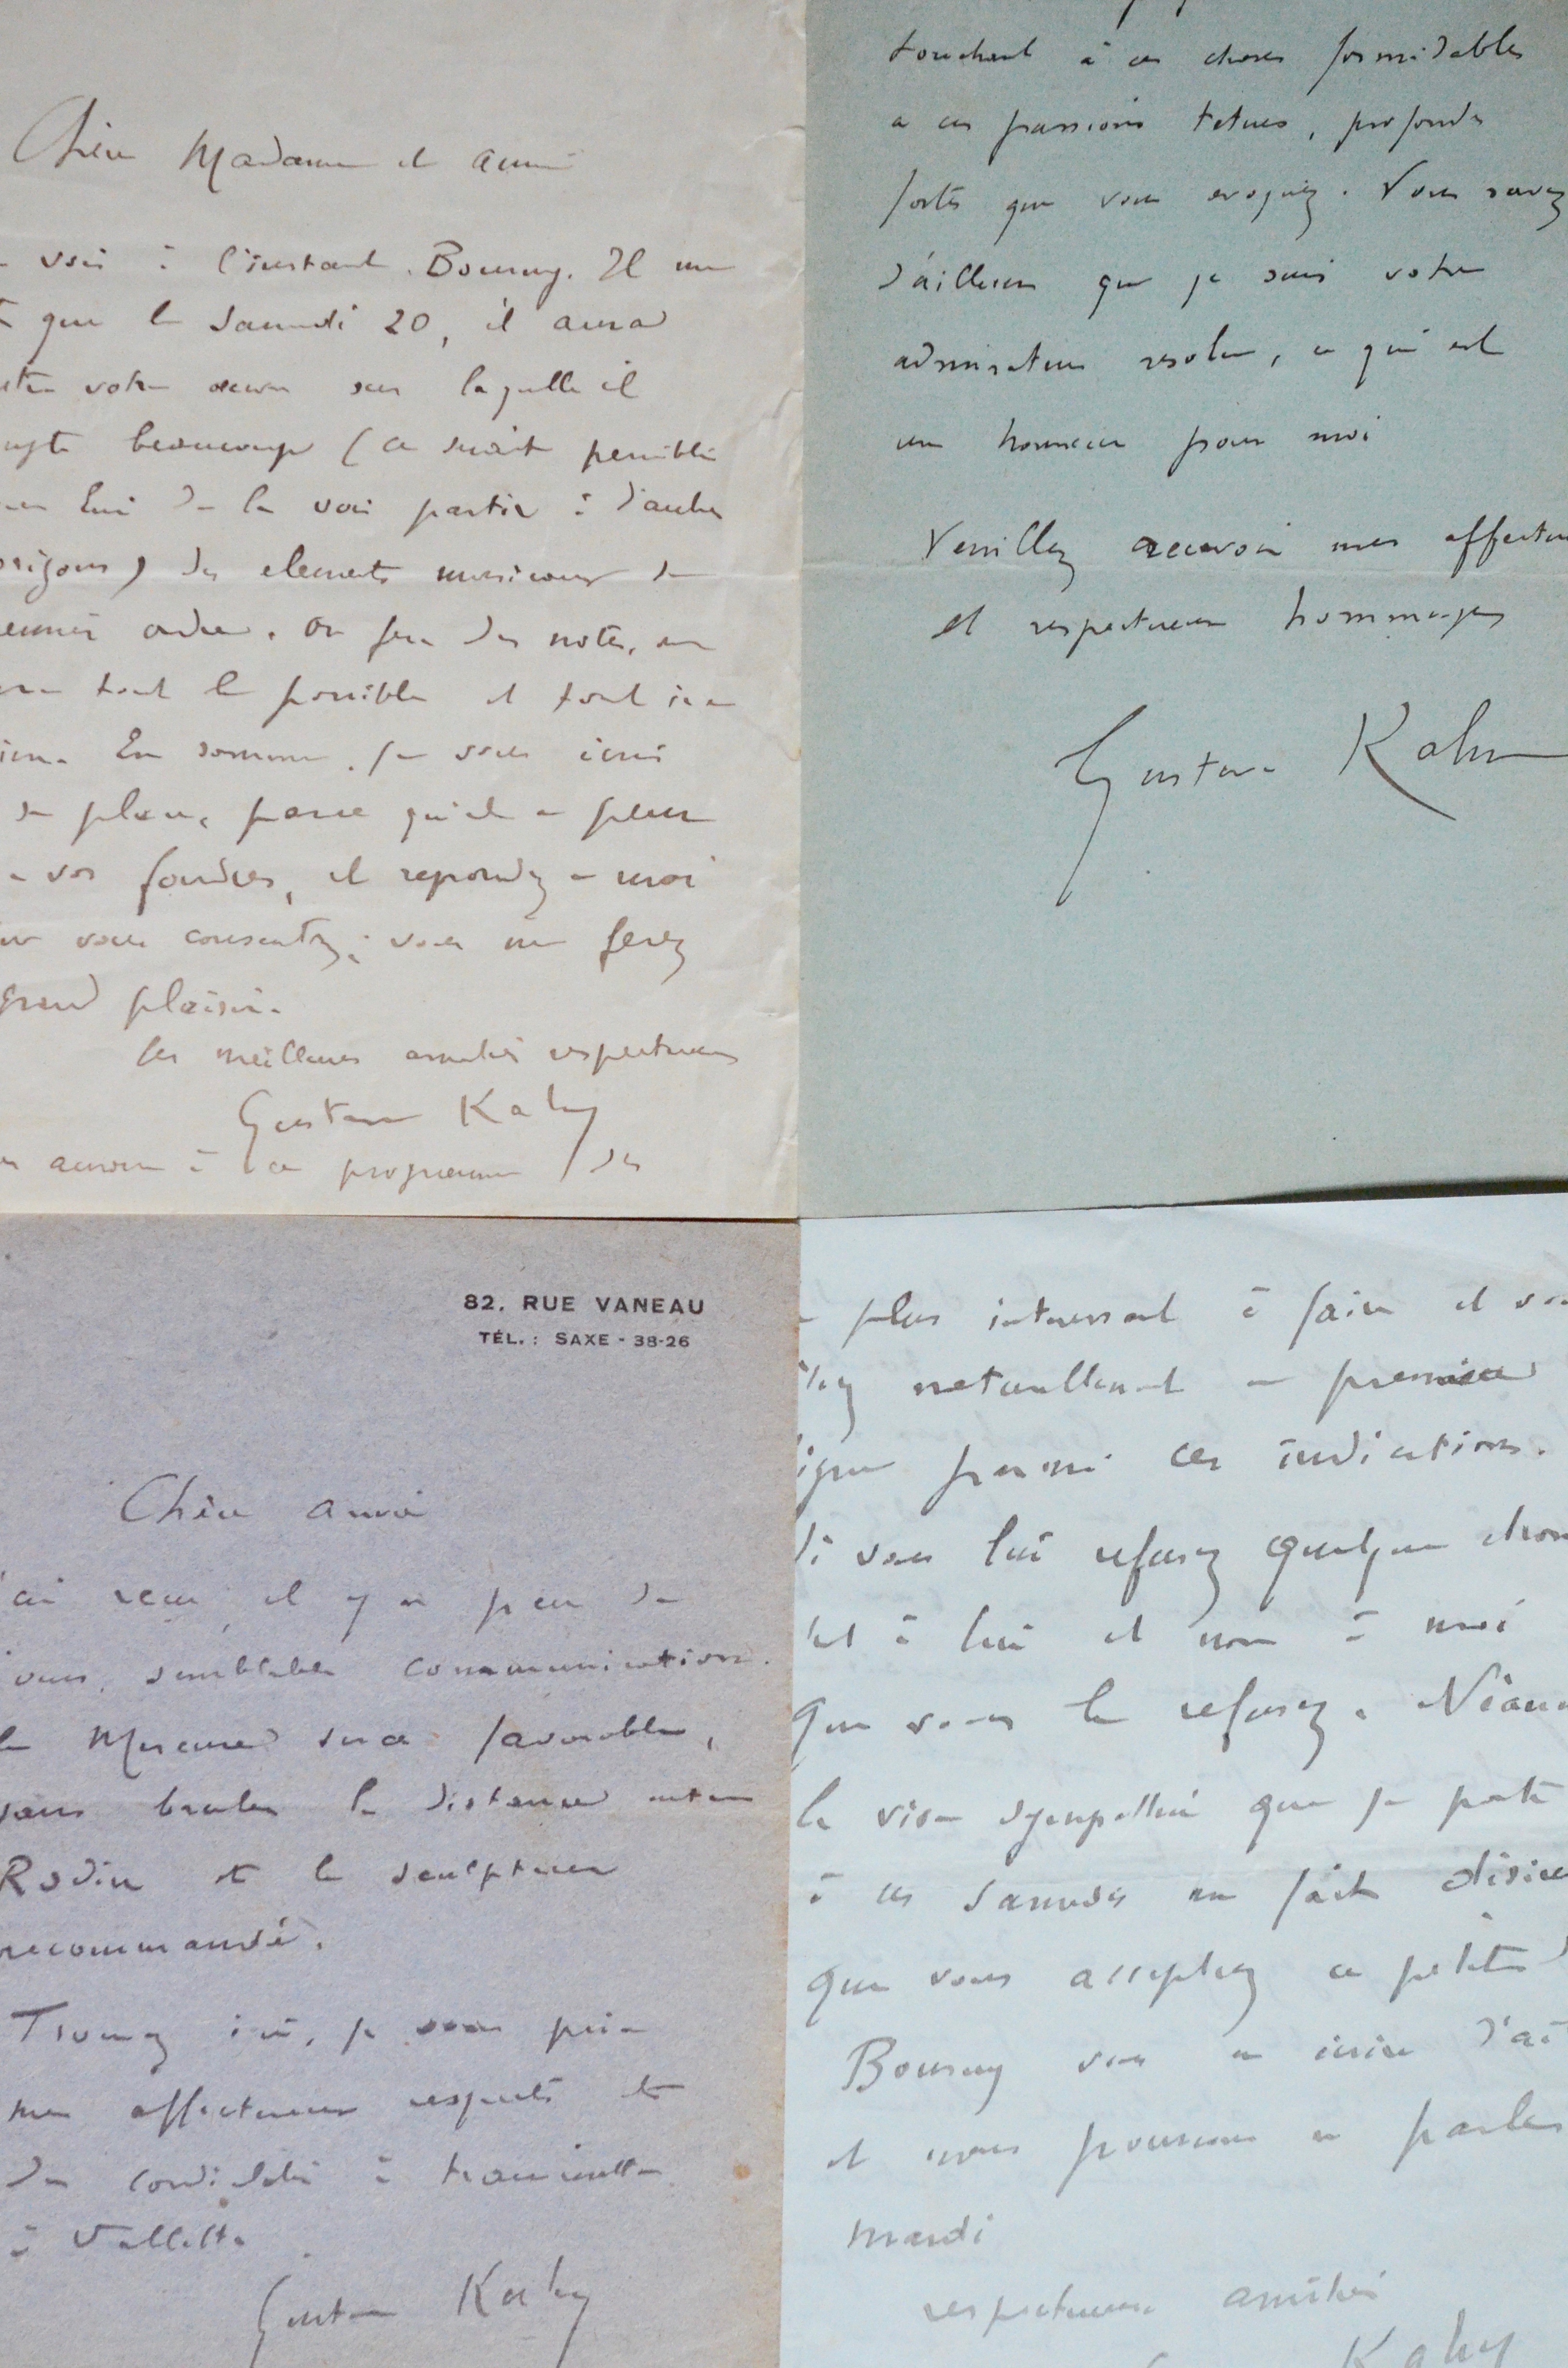 Chère Madame et amie
vois à l'instant Bourny. Il me
que le Samedi 20, il aura
votre oeuvre sur laquelle il
beaucoup (ce serait penible
lui de la voir partir à d'autres
des elements musicaux de
ordre. On fera des notes, on
tout le possible et tout ira
En somme, je vous écris
sa place, parce qu'il a peur
de vos foudres, et repondez à moi
vous consentez; vous me ferez
grand plaisir.
les meilleures amitiés respectueuses
Gustave Kahn
aurons à ce programme des
touchant à ces choses formidables
a ces passions tetues, profondes
fortes que vous evoquez. Vous savez
d'ailleurs que je suis votre
admirateur resolu, ce qui est
un honneur pour moi
Veuillez recevoir mes affectu
et respectueux hommages
Gustave Kahn
82, RUE VANEAU
TÉL. : SAXE - 38-26
Chère amie
ai recu, il y a peu de
semblable communication.
le Mercure sera favorable,
sans la distance entre
Rodin et le sculpteur
recommandé.
Trouvez ici, je vous prie
mes affectueux respects et
des cordialités à transmettre
à Vallette
Gustave Kahn
plus interessant à faire et
naturellement en premiere
ligne parmi ces indications.
Si vous lui refusez quelque chose
c'est à lui et non à moi
que vous le refusez. Néan
la vive sympathie que je porte
à ces Samedis me fait désirer
que vous acceptiez ce petit
Bourny vous a écrire d'ai
et nous pourrons en parler
mardi
respectueuses amitiés
Kahn